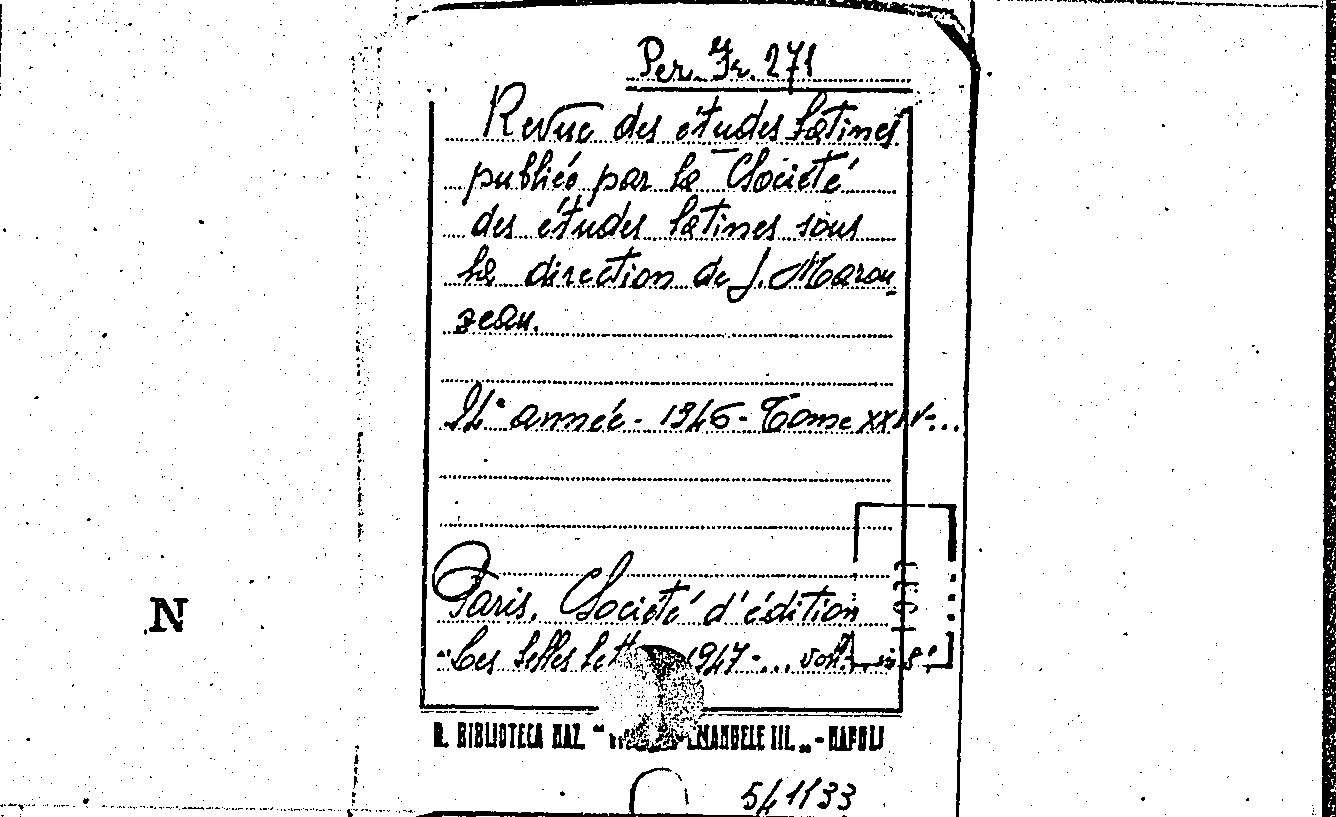 Per. Fr. 271
Revue des études latines
publiée par la Société
des études latines sous
la direction de J. Marou-
zeau.
24e année - 1946 - Tome XXIV - ...
Paris. Société d'édition
"Les belles lett 1947 - ... voll. in 8°
N
R. BIBLIOTECA NAZ. " EMANUELE III. „ - NAPOLI
5/11/33